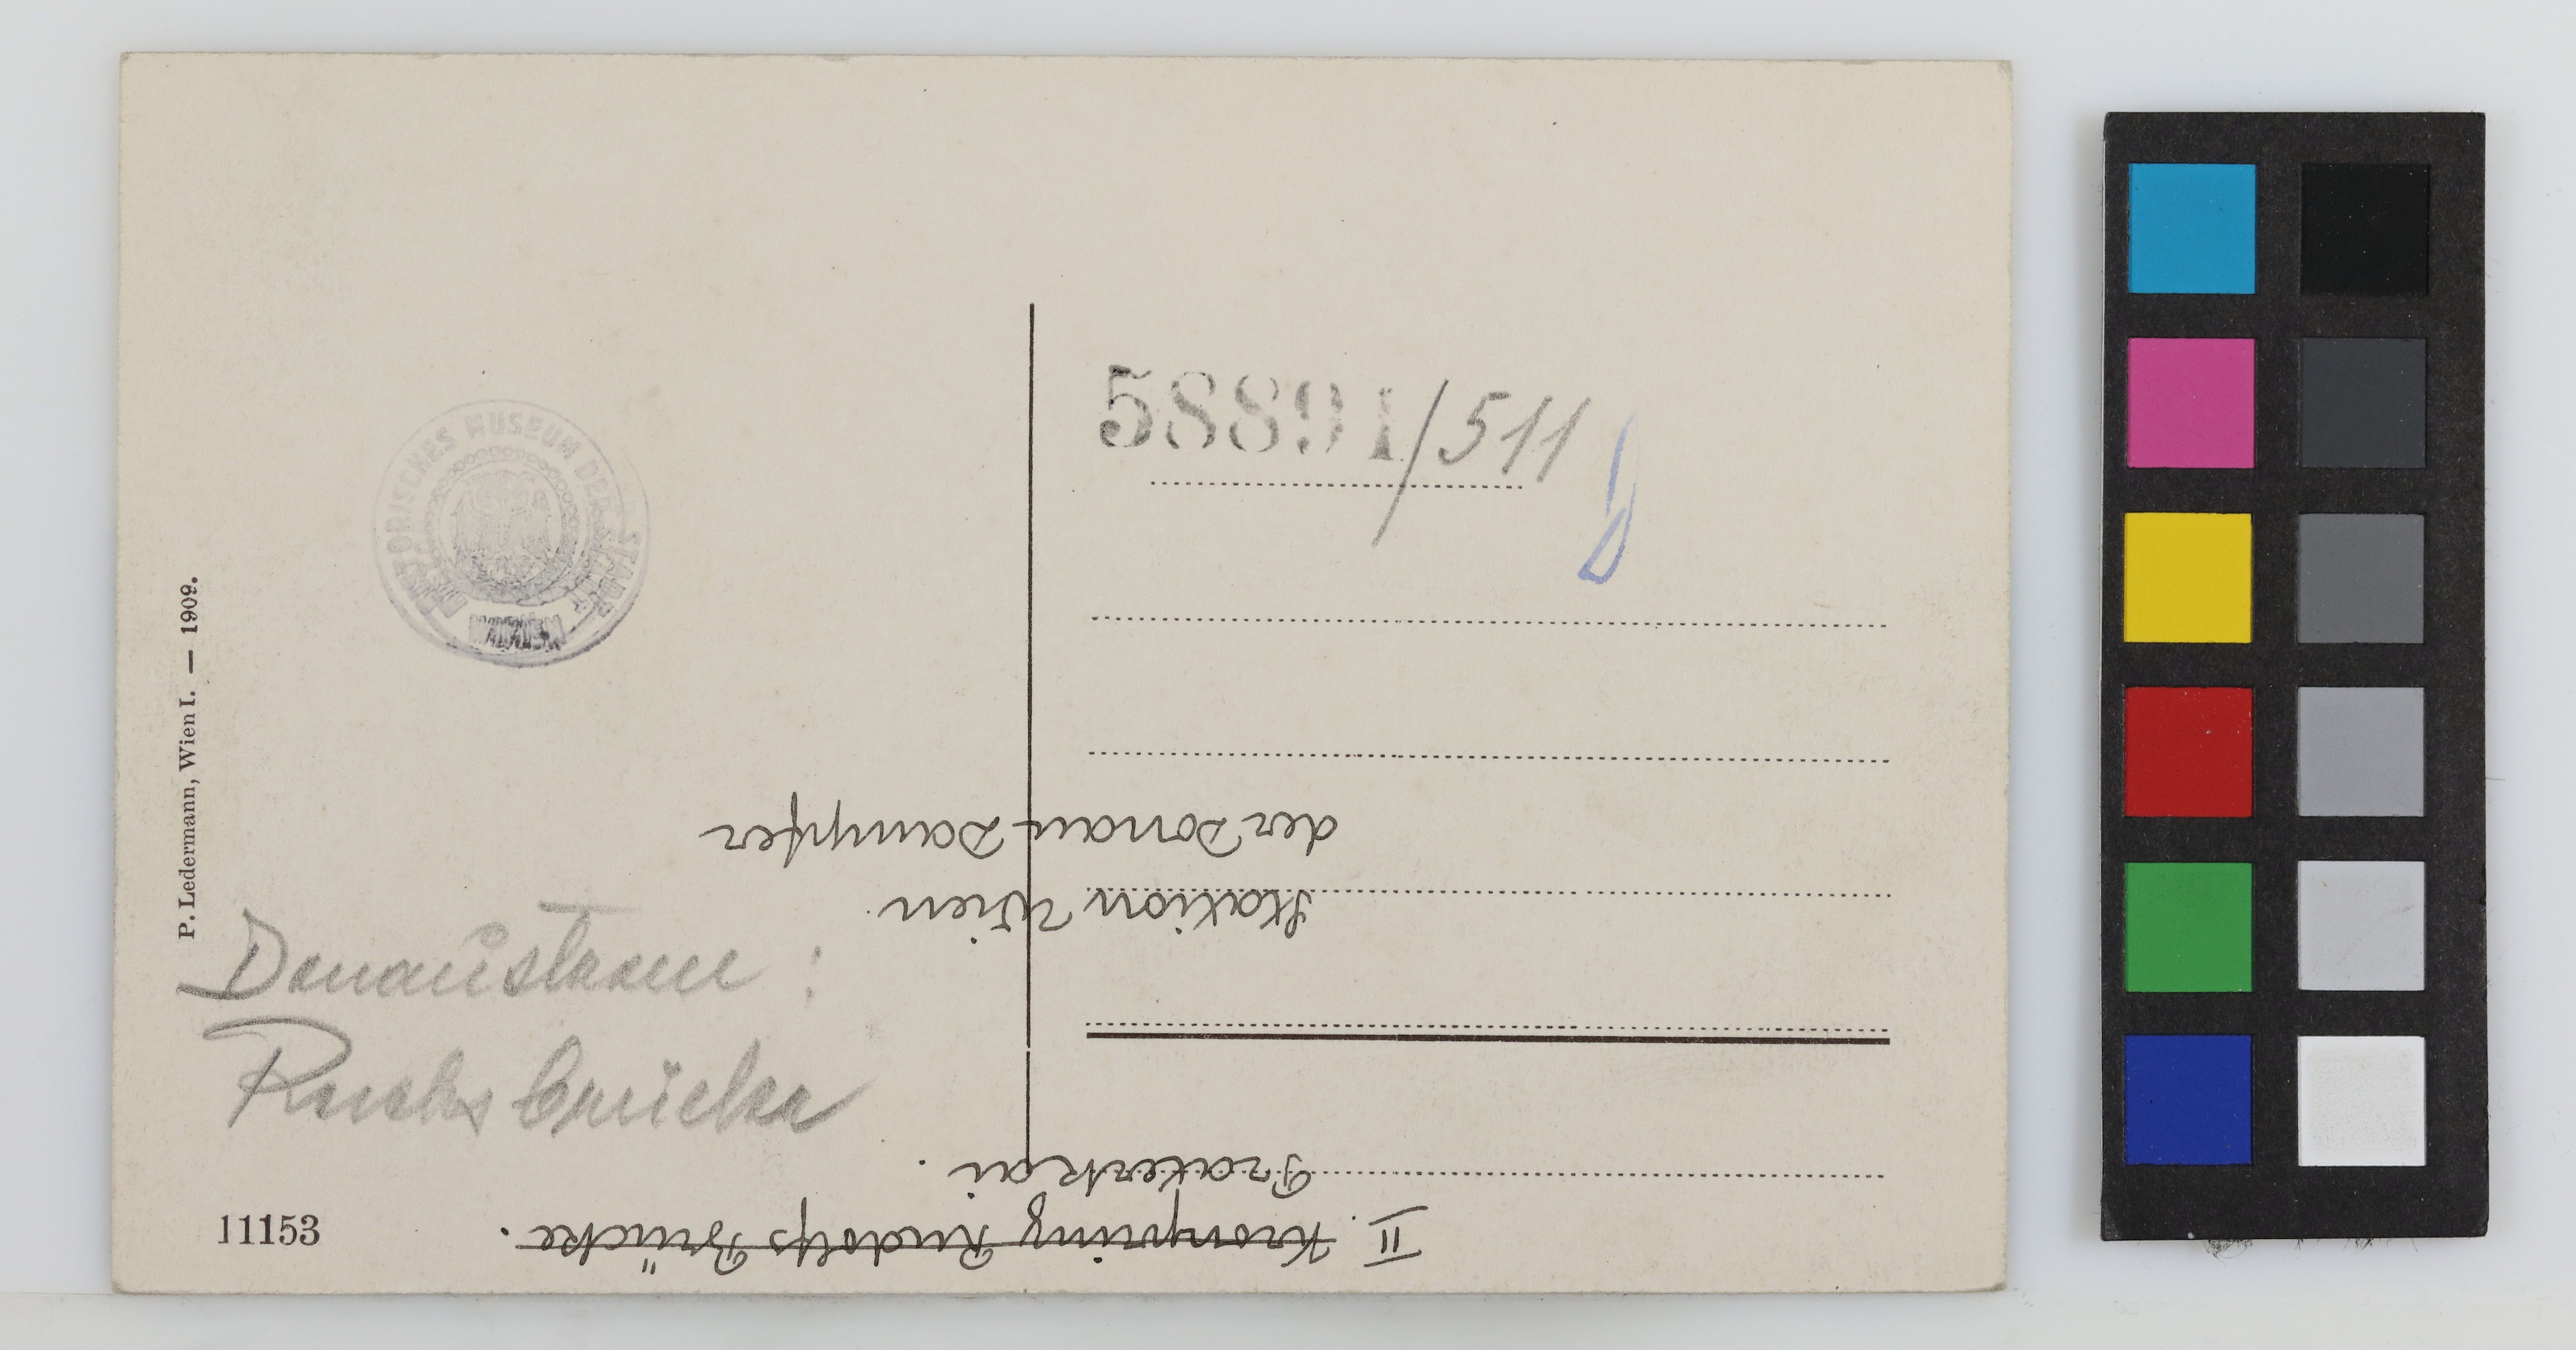 P. Ledermann, Wien I. — 1909.
HISTORISCHES MUSEUM DER STADT WIEN
58891/511
Donaustrom :
Reichsbrücke
11153
II. Kronprinz Rudolfs Brücke.
Praterkai.
Station Wien
der Donau-Dampfer